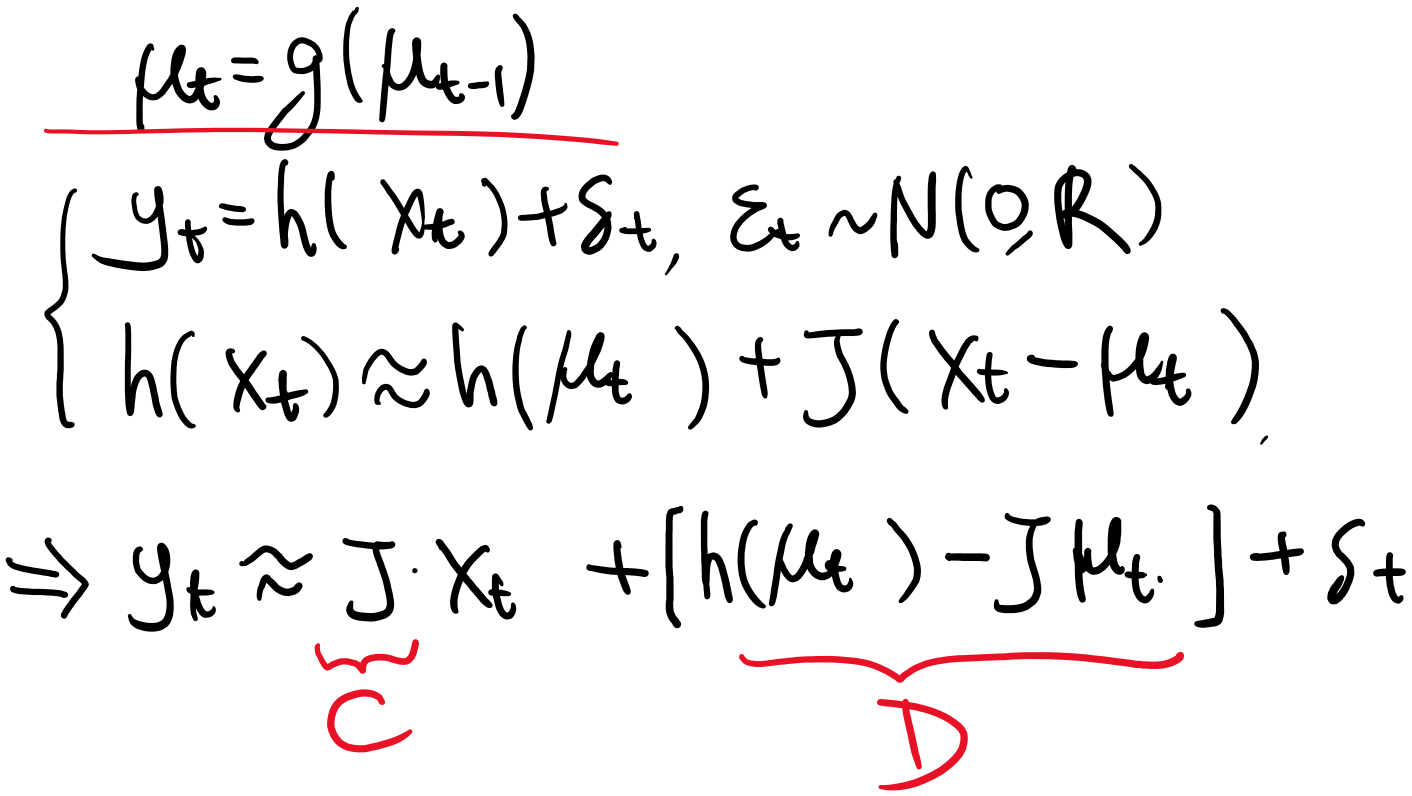 μₜ = g(μₜ₋₁)
yₜ = h(xₜ) + δₜ, εₜ ~ N(0, R)
h(xₜ) ≈ h(μₜ) + J(xₜ − μₜ).
⇒ yₜ ≈ J · xₜ + [h(μₜ) − Jμₜ.] + δₜ
C D